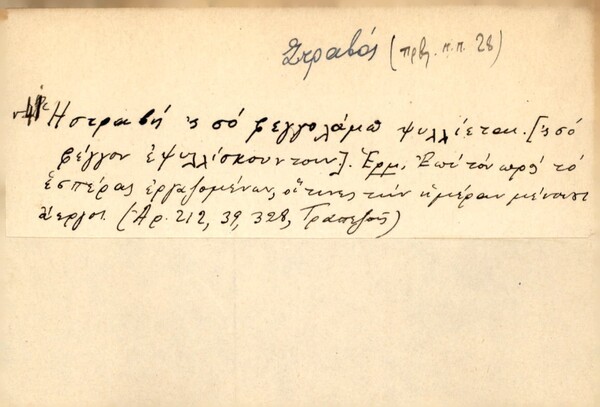 Στραβός (πρβ. π.π. 28)
Ἡ στραβή 'ς σό φεγγολάμπ ψυλλίεται. [ς σό
φέγγον ἐψυλλίσκουντουν]. Ἑρμ. Ἐπί τῶν πρός τό
ἑσπέρας ἐργαζομένων, οἵτινες τήν ἡμέραν μένουσι
ἀεργοι. (Ἀρ. 212, 39, 328, Τραπεζοῦς)